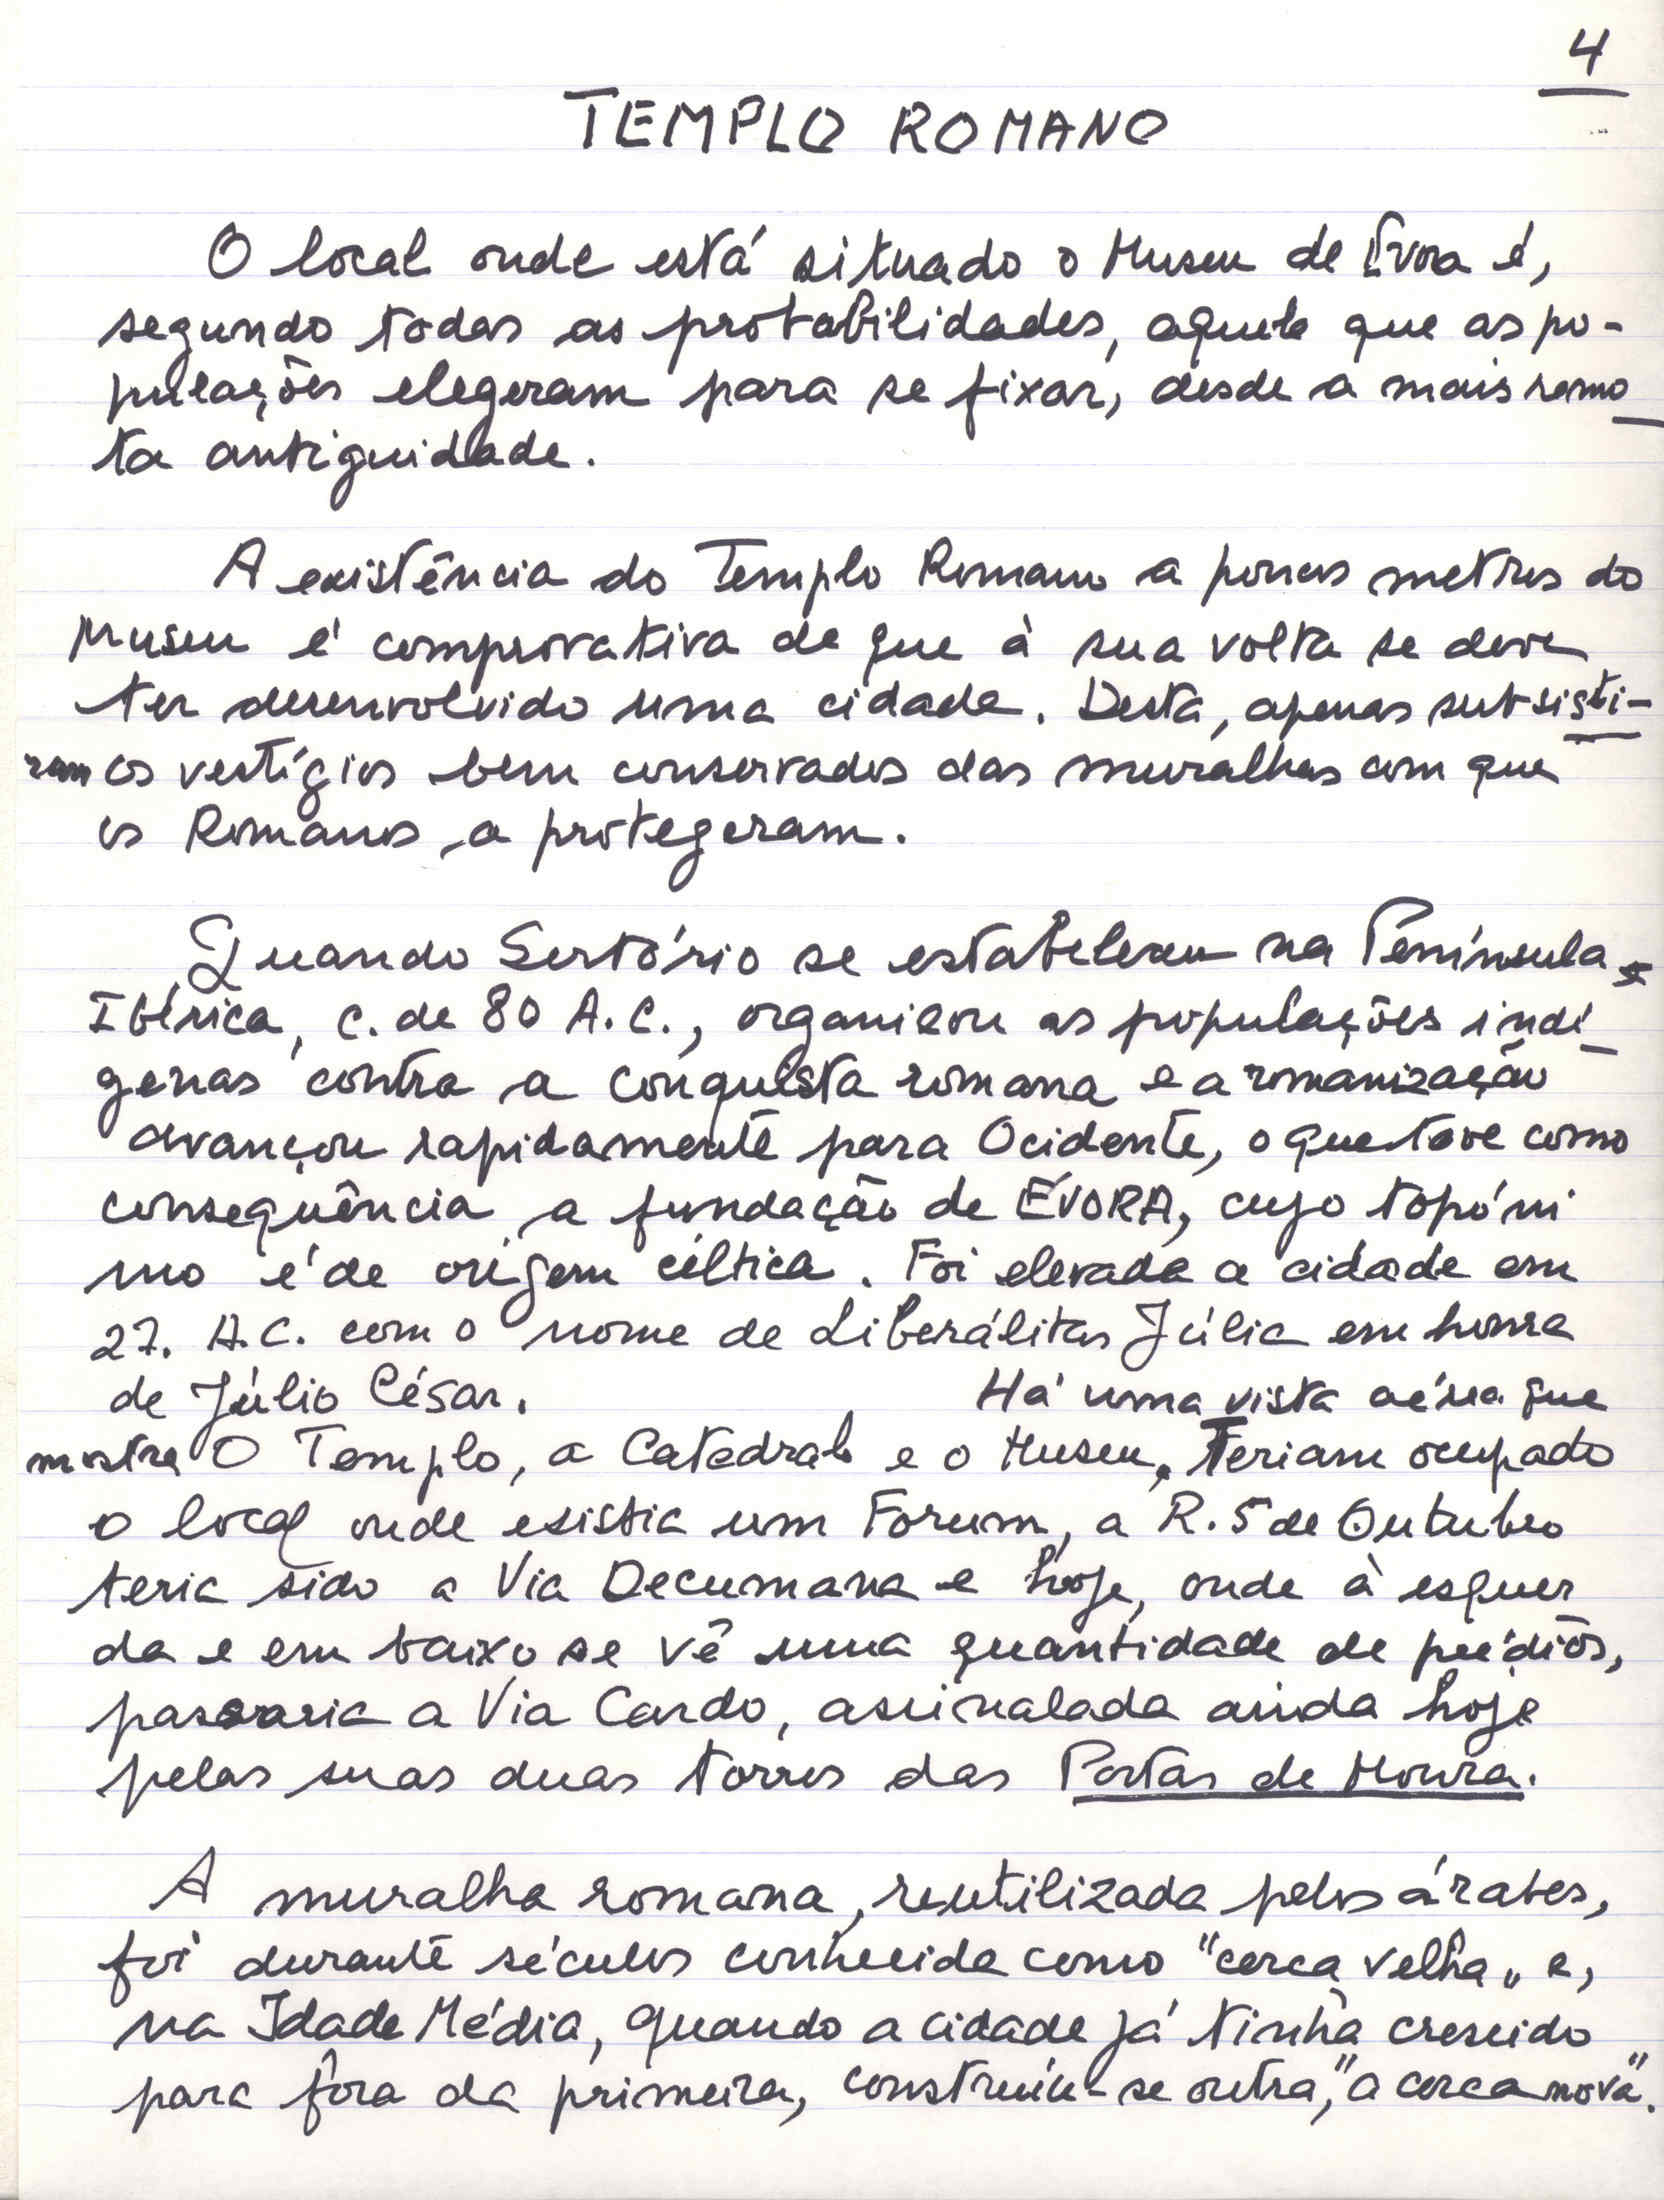 4
TEMPLO ROMANO
O local onde está situado o Museu de Évora é,
segundo todas as probabilidades, aquele que as po-
pulações elegeram para se fixar, desde a mais remo
ta antiguidade.
A existência do Templo Romano a poucos metros do
Museu é comprovativa de que à sua volta se deve
ter desenvolvido uma cidade. Desta, apenas subsisti-
ram os vestígios bem conservados das muralhas com que
os Romanos a protegeram.
Quando Sertório se estabeleceu na Península
Ibérica, c. de 80 A.C., organizou as populações indí
genas contra a conquista romana e a romanização
avançou rapidamente para Ocidente, o que teve como
consequência a fundação de ÉVORA, cujo topóni
mo é de origem céltica. Foi elevada a cidade em
27. A.C. com o nome de Liberálitas Júlia em honra
de Júlio César. Há uma vista aérea que
mostra O Templo, a Catedral e o Museu. Teriam ocupado
o local onde existia um Forum, a R. 5 de Outubro
teria sido a Via Decumana e hoje, onde à esquer
da e em baixo se vê uma quantidade de prédios,
passaria a Via Cardo, assinalada ainda hoje
pelas suas duas torres das Portas de Moura.
A muralha romana, reutilizada pelos árabes,
foi durante séculos conhecida como "cerca velha" e,
na Idade Média, quando a cidade já tinha crescido
para fora da primeira, construiu-se outra, "a cerca nova".